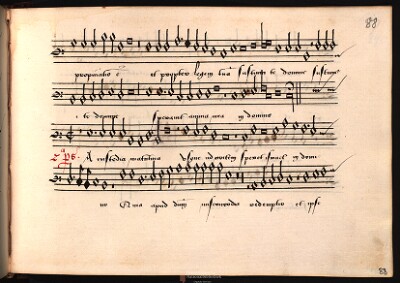 88
propiciatio ē et propter legem tuā sustinui te domine sustinui
te domine speravit anima mea in domino
A custodia matutina Usque ad noctem speret israel in domi
no Quia apud dnm misericordia redemptio et ipse
88